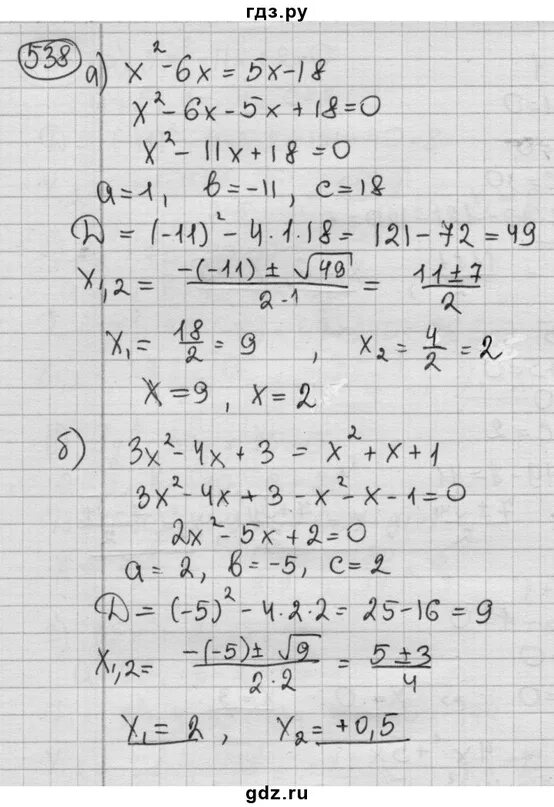 гдз.ру
538 а) x² - 6x = 5x - 18
x² - 6x - 5x + 18 = 0
x² - 11x + 18 = 0
a = 1, в = -11, c = 18
D = (-11)² - 4·1·18 = 121 - 72 = 49
x₁,₂ = (-(-11) ± √49)/(2·1) = (11 ± 7)/2
x₁ = 18/2 = 9, x₂ = 4/2 = 2
x = 9, x = 2
б) 3x² - 4x + 3 = x² + x + 1
3x² - 4x + 3 - x² - x - 1 = 0
2x² - 5x + 2 = 0
a = 2, в = -5, c = 2
D = (-5)² - 4·2·2 = 25 - 16 = 9
x₁,₂ = (-(-5) ± √9)/(2·2) = (5 ± 3)/4
x₁ = 2, x₂ = +0,5
gdz.ru